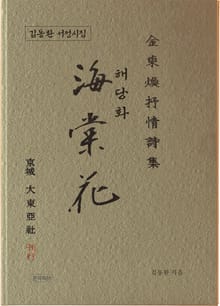 김동환 서정시집
金東煥抒情詩集
해당화
海棠花
京城 大東亞社 刊行
김동환 지음